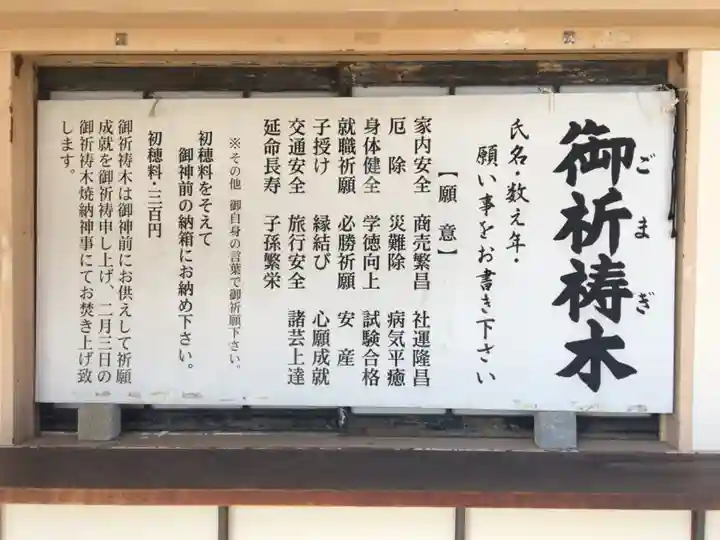 御祈祷木
ごまぎ
氏名・数え年・
願い事をお書き下さい
【願意】
家内安全 商売繁昌 社運隆昌
厄除 災難除 病気平癒
身体健全 学徳向上 試験合格
就職祈願 必勝祈願 安産
子授け 縁結び 心願成就
交通安全 旅行安全 諸芸上達
延命長寿 子孫繁栄
※その他 御自身の言葉で御祈願下さい。
初穂料をそえて
御神前の納箱にお納め下さい。
初穂料・三百円
御祈祷木は御神前にお供えして祈願
成就を御祈祷申し上げ、二月三日の
御祈祷木焼納神事にてお焚き上げ致
します。